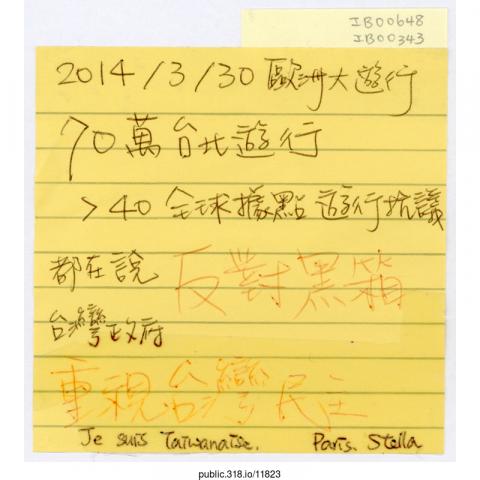 IB00648
IB00343
2014/3/30 歐洲大遊行
70萬台北遊行
>40 全球據點遊行抗議
都在說 反對黑箱
台灣政府
重視台灣民主
Je suis Taiwanaise. Paris. Stella
public.318.io/11823